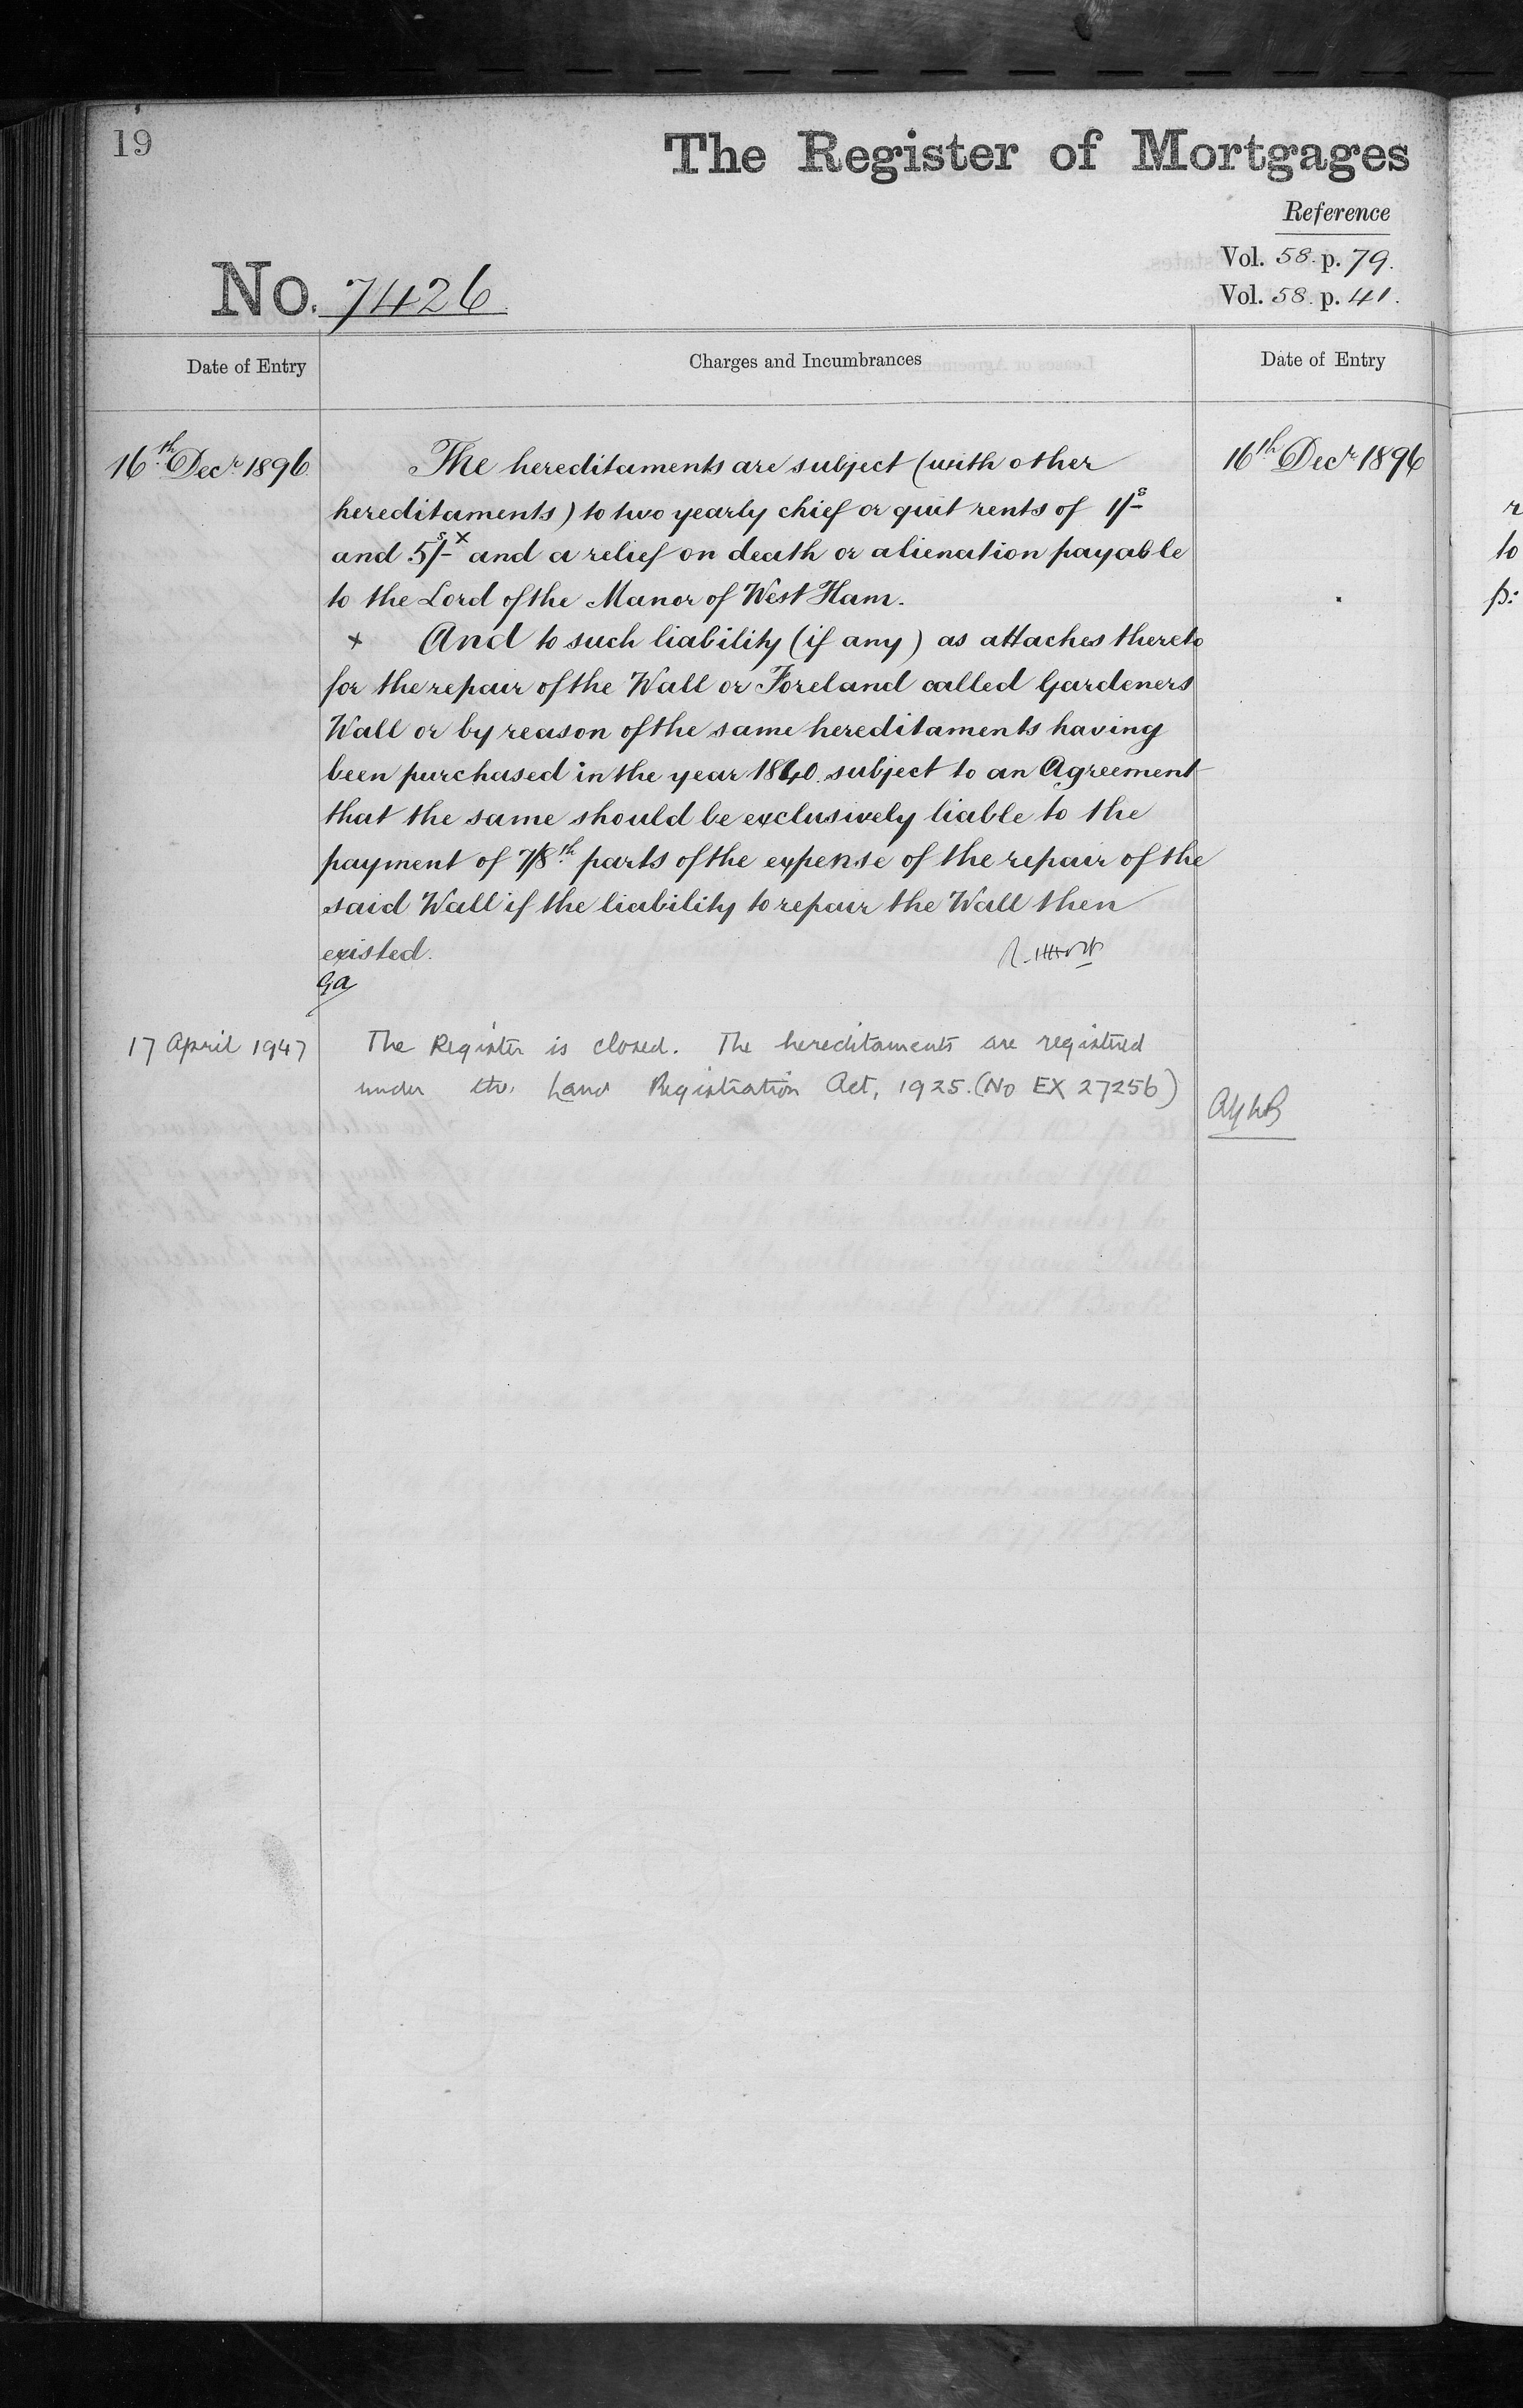 19
The Register of Mortgages
Reference
Vol. 58. p. 79.
No. 7426.
Vol. 58. p. 41.
Date of Entry
Charges and Incumbrances
Date of Entry
16th Decr 1896
The hereditaments are subject (with other
16th Decr 1896
hereditaments) to two yearly chief or quit rents of 1/-s
and 5/-s x and a relief on death or alienation payable
to the Lord of the Manor of West Ham.
x And to such liability (if any) as attaches thereto
for the repair of the Wall or Foreland called Gardeners
Wall or by reason of the same hereditaments having
been purchased in the year 1840. subject to an Agreement
that the same should be exclusively liable to the
payment of 7/8th parts of the expense of the repair of the
said Wall if the liability to repair the Wall then
existed.
Ga
17 April 1947
The Register is closed. The hereditaments are registered
under the Land Registration Act, 1925. (No EX 27256)
r
to
p: